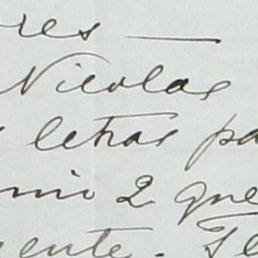 res —
Nicolas
letras pa
mio 2 que
ente. Te